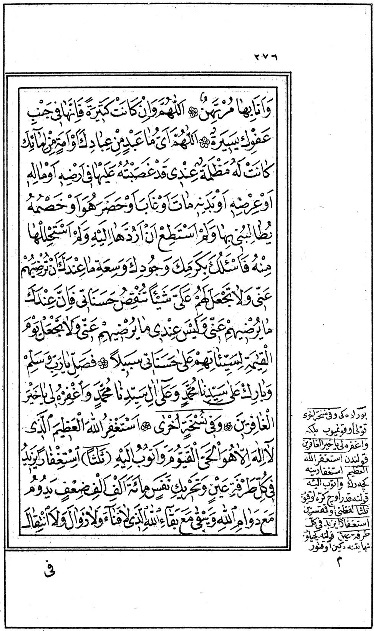 ٢٧٦
وَاَنَا بِهَا مُرْتَهَنٌ ۞ اَللّٰهُمَّ وَاِنْ كَانَتْ كَبِيرَةً فَاِنَّهَا فِى جَنْبِ
عَفْوِكَ يَسِيرَةٌ ۞ اَللّٰهُمَّ اَىُّ مَا عَبْدٍ مِنْ عِبَادِكَ اَوْ اَمَةٍ مِنْ اِمَائِكَ
كَانَتْ لَهُ مَظْلِمَةٌ عِنْدِى قَدْ غَصَبْتُهُ عَلَيْهَا فِى اَرْضِهِ اَوْ مَالِهِ
اَوْ عِرْضِهِ اَوْ بَدَنِهِ مَاتَ اَوْ غَابَ اَوْ حَضَرَ هُوَ اَوْ خَصْمُهُ
يُطَالِبُنِى بِهَا وَلَمْ اَسْتَطِعْ اَنْ اَرُدَّهَا اِلَيْهِ وَلَمْ اَسْتَحْلِلْهَا
مِنْهُ فَاَسْئَلُكَ بِكَرَمِكَ وَجُودِكَ وَسَعَةِ مَا عِنْدَكَ اَنْ تُرْضِيَهُمْ
عَنِّى وَلَا تَجْعَلْ لَهُمْ عَلَىَّ شَيْئًا تُنْقِصُ حَسَنَاتِى فَاِنَّ عِنْدَكَ
مَا يُرْضِيهِمْ عَنِّى وَلَيْسَ عِنْدِى مَا يُرْضِيهِمْ عَنِّى وَلَا تَجْعَلْ يَوْمَ
الْقِيٰمَةِ لِسَيِّئَاتِهِمْ عَلَى حَسَنَاتِى سَبِيلًا ۞ فَصَلِّ يَارَبِّ وَسَلِّمْ
وَبَارِكْ عَلَى سَيِّدِنَا مُحَمَّدٍ وَعَلَى آلِ سَيِّدِنَا مُحَمَّدٍ وَاغْفِرْ لِى يَاخَيْرَ
الْغَافِرِينَ ۞ وَفِى نُسْخَةٍ اُخْرٰى ۞ اَسْتَغْفِرُ اللّٰهَ الْعَظِيمَ الَّذِى
لَا اِلٰهَ اِلَّا هُوَ الْحَىَّ الْقَيُّومَ وَاَتُوبُ اِلَيْهِ (ثَلٰثًا) اِسْتِغْفَارًا يَزِيدُ
فِى كُلِّ طَرْفَةِ عَيْنٍ وَتَحْرِيكِ نَفَسٍ مِائَةَ اَلْفِ اَلْفِ ضِعْفٍ يَدُومُ
مَعَ دَوَامِ اللّٰهِ وَيَبْقٰى مَعَ بَقَاءِ اللّٰهِ الَّذِى لَا فَنَاءَ وَلَا زَوَالَ وَلَا انْتِقَالَ
وفى نسخة اخرى
واغفر لى ياخير الغافرين
استغفر الله
العظيم
واتوب اليه
م
فى